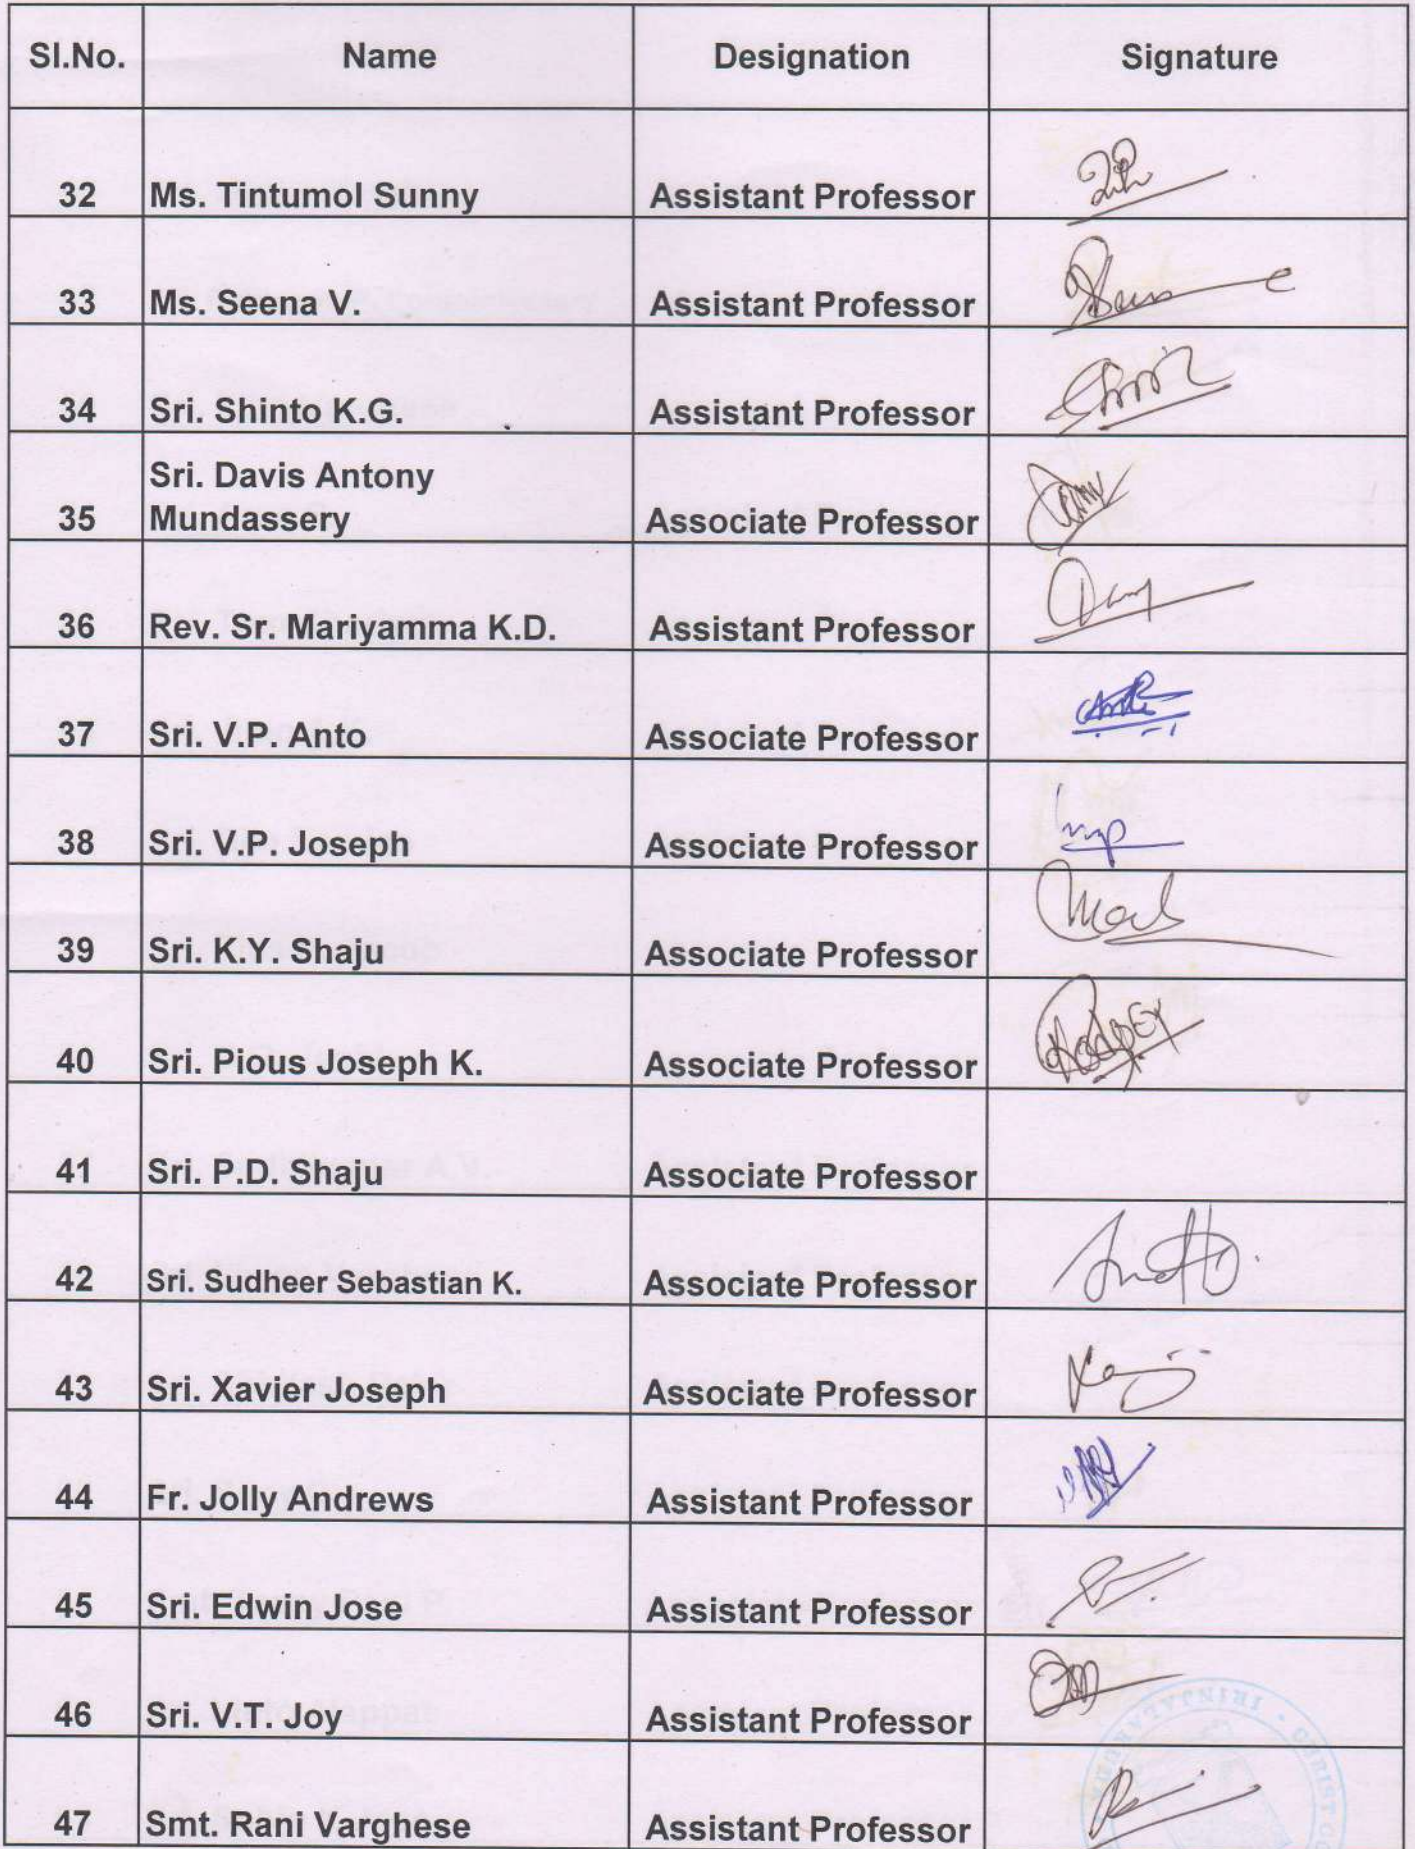 Sl.No. Name Designation Signature
32 Ms. Tintumol Sunny Assistant Professor
33 Ms. Seena V. Assistant Professor
34 Sri. Shinto K.G. Assistant Professor
Sri. Davis Antony
35 Mundassery Associate Professor
36 Rev. Sr. Mariyamma K.D. Assistant Professor
37 Sri. V.P. Anto Associate Professor
38 Sri. V.P. Joseph Associate Professor
39 Sri. K.Y. Shaju Associate Professor
40 Sri. Pious Joseph K. Associate Professor
41 Sri. P.D. Shaju Associate Professor
42 Sri. Sudheer Sebastian K. Associate Professor
43 Sri. Xavier Joseph Associate Professor
44 Fr. Jolly Andrews Assistant Professor
45 Sri. Edwin Jose Assistant Professor
46 Sri. V.T. Joy Assistant Professor
47 Smt. Rani Varghese Assistant Professor